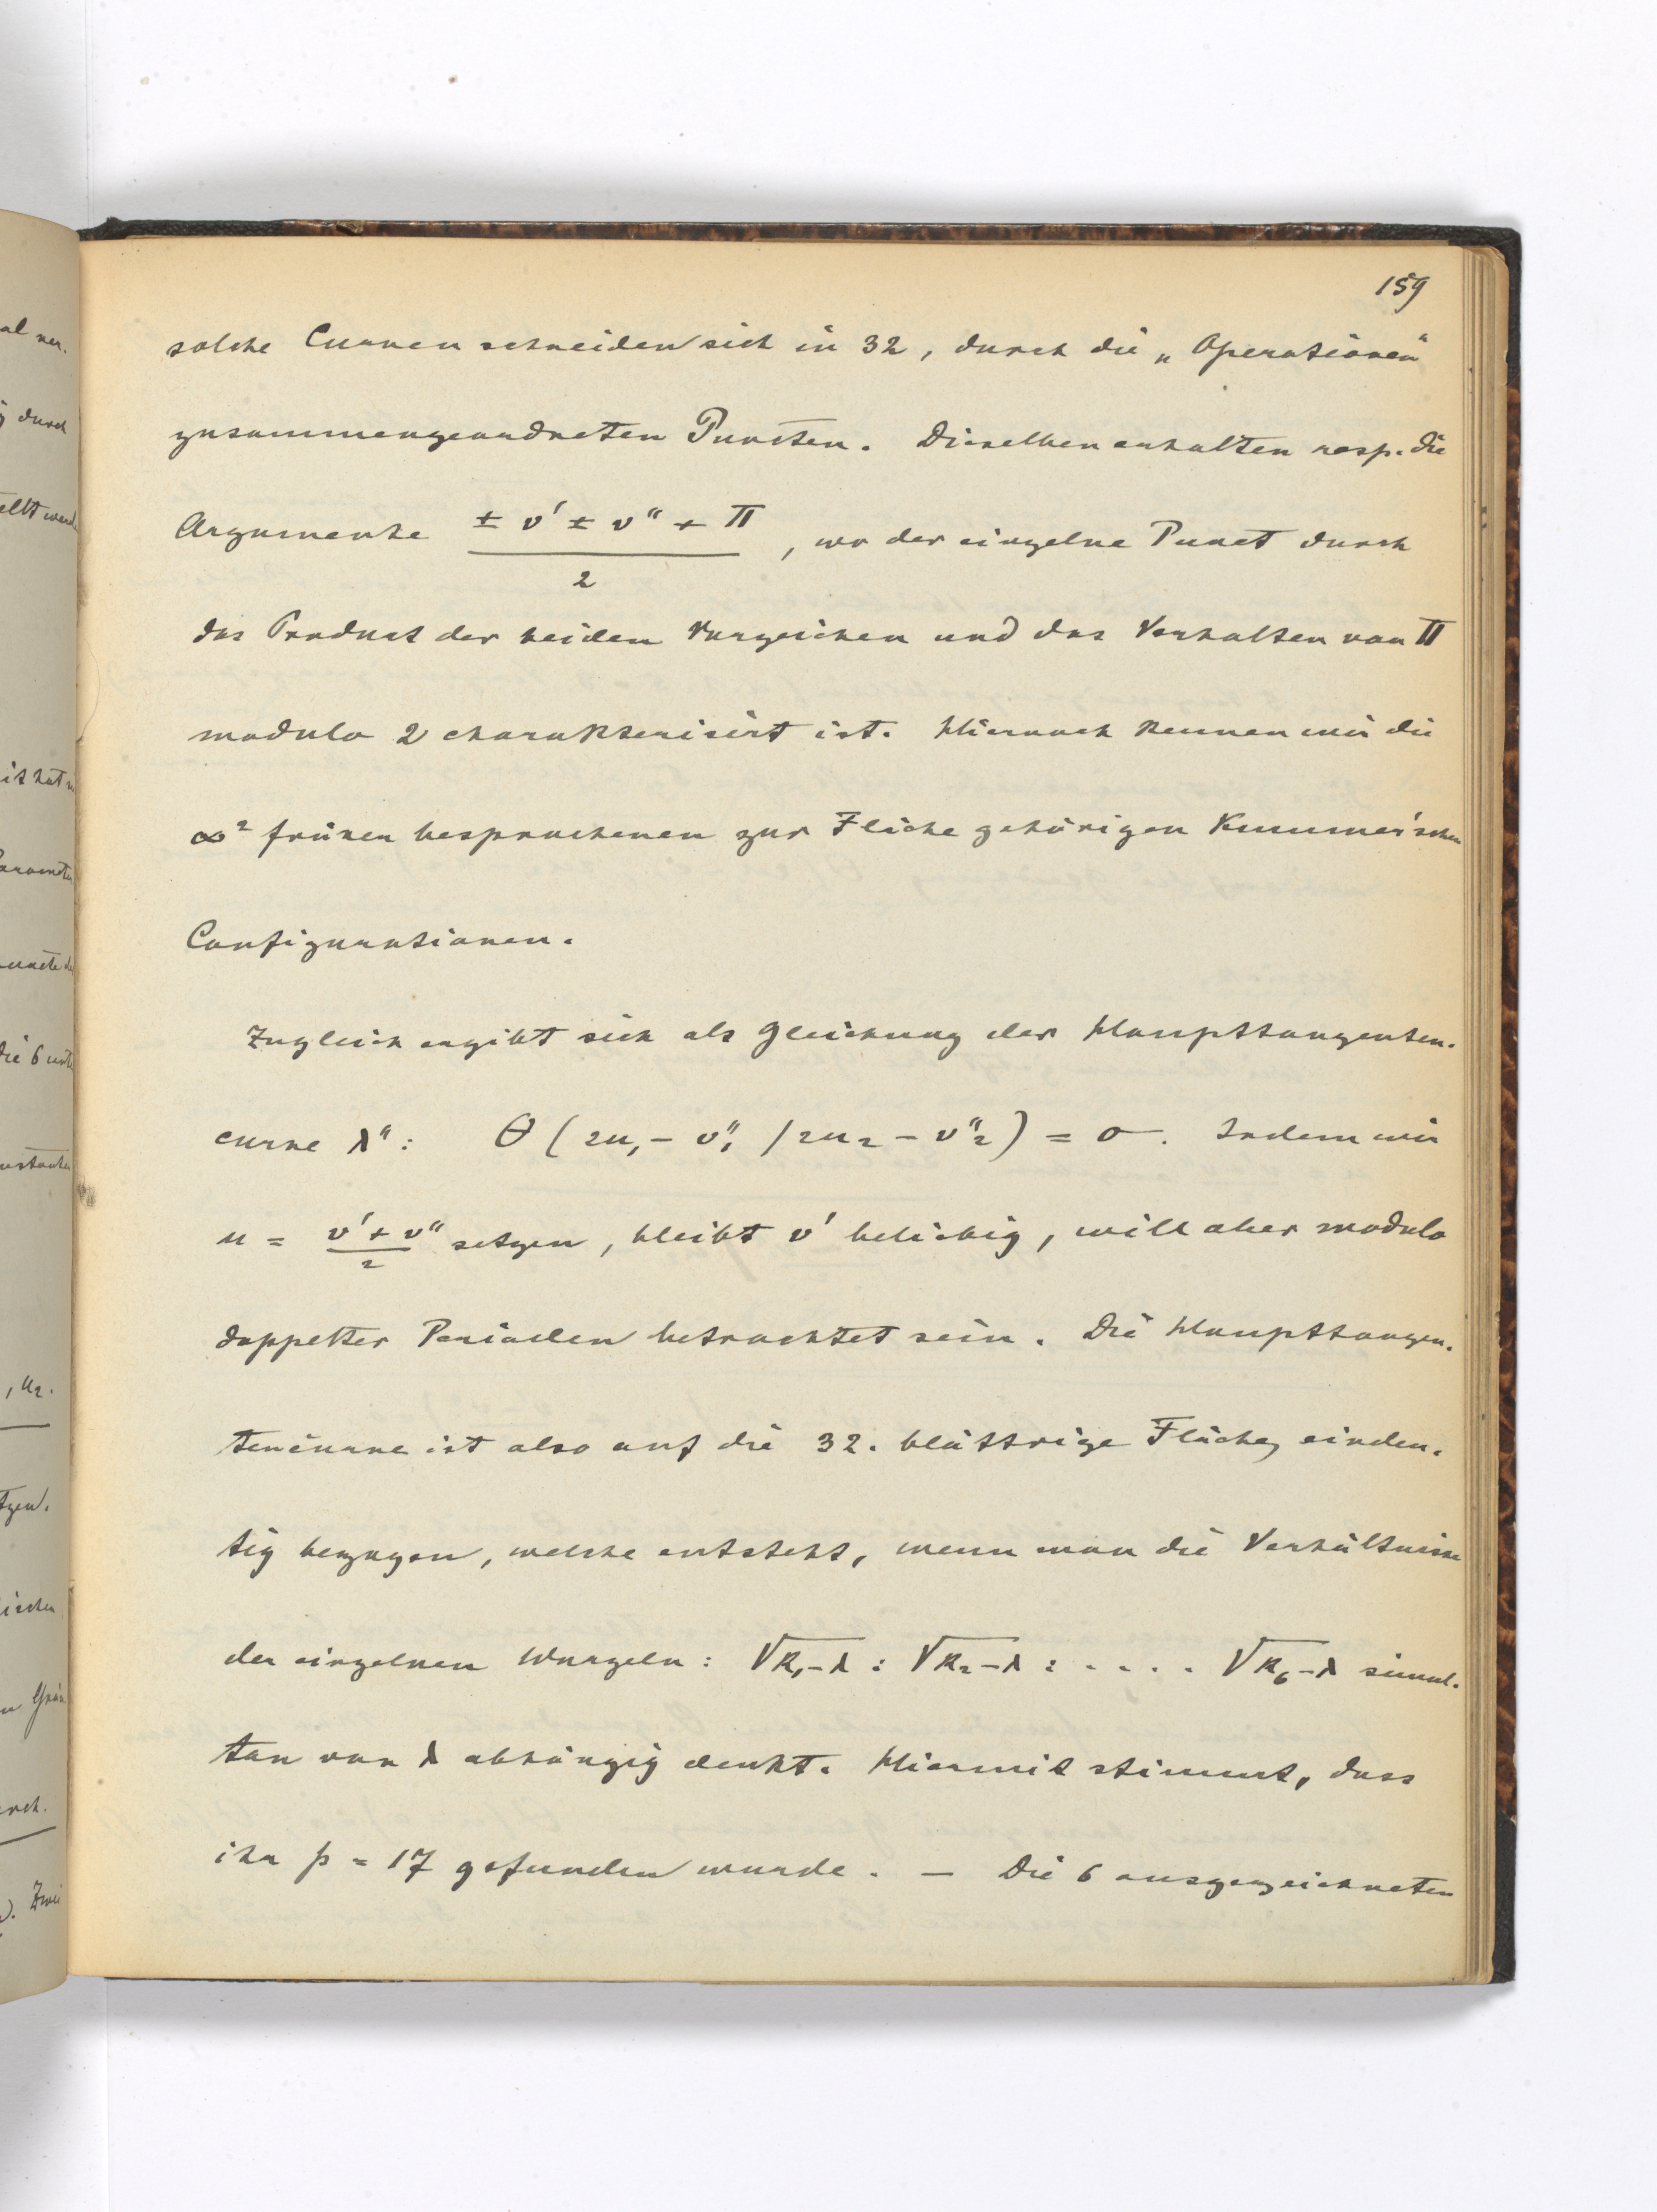 159
solche Curven schneiden sich in 32, durch die „Operationen“
zusammengeordneten Puncten. Dieselben erhalten resp. die
Argumente (± v′ ± v″ + Π)/2, wo der einzelne Punct durch
das Product der beiden Vorzeichen und das Verhalten von Π
modulo 2 charakterisirt ist. Hiernach kennen wir die
∞² früher besprochenen zur Fläche gehörigen Kummer'schen
Configurationen.
Zugleich ergibt sich als Gleichung der Haupttangenten-
curve λ″: θ (2u₁ - v″₁ / 2u₂ - v″₂) = 0. Indem wir
u = (v′ + v″)/2 setzen, bleibt v′ beliebig, will aber modulo
doppelter Perioden betrachtet sein. Die Haupttangen-
tencurve ist also auf die 32-blättrige Fläche eindeu-
tig bezogen, welche entsteht, wenn man die Verhältnisse
der einzelnen Wurzeln: √k₁-λ : √k₂-λ : . . . . √k₆-λ simul-
tan von λ abhängig denkt. Hiermit stimmt, dass
ihr p = 17 gefunden wurde. — Die 6 ausgezeichneten
al ver-
durch
die 6
, u₂.
ischen
Zwei